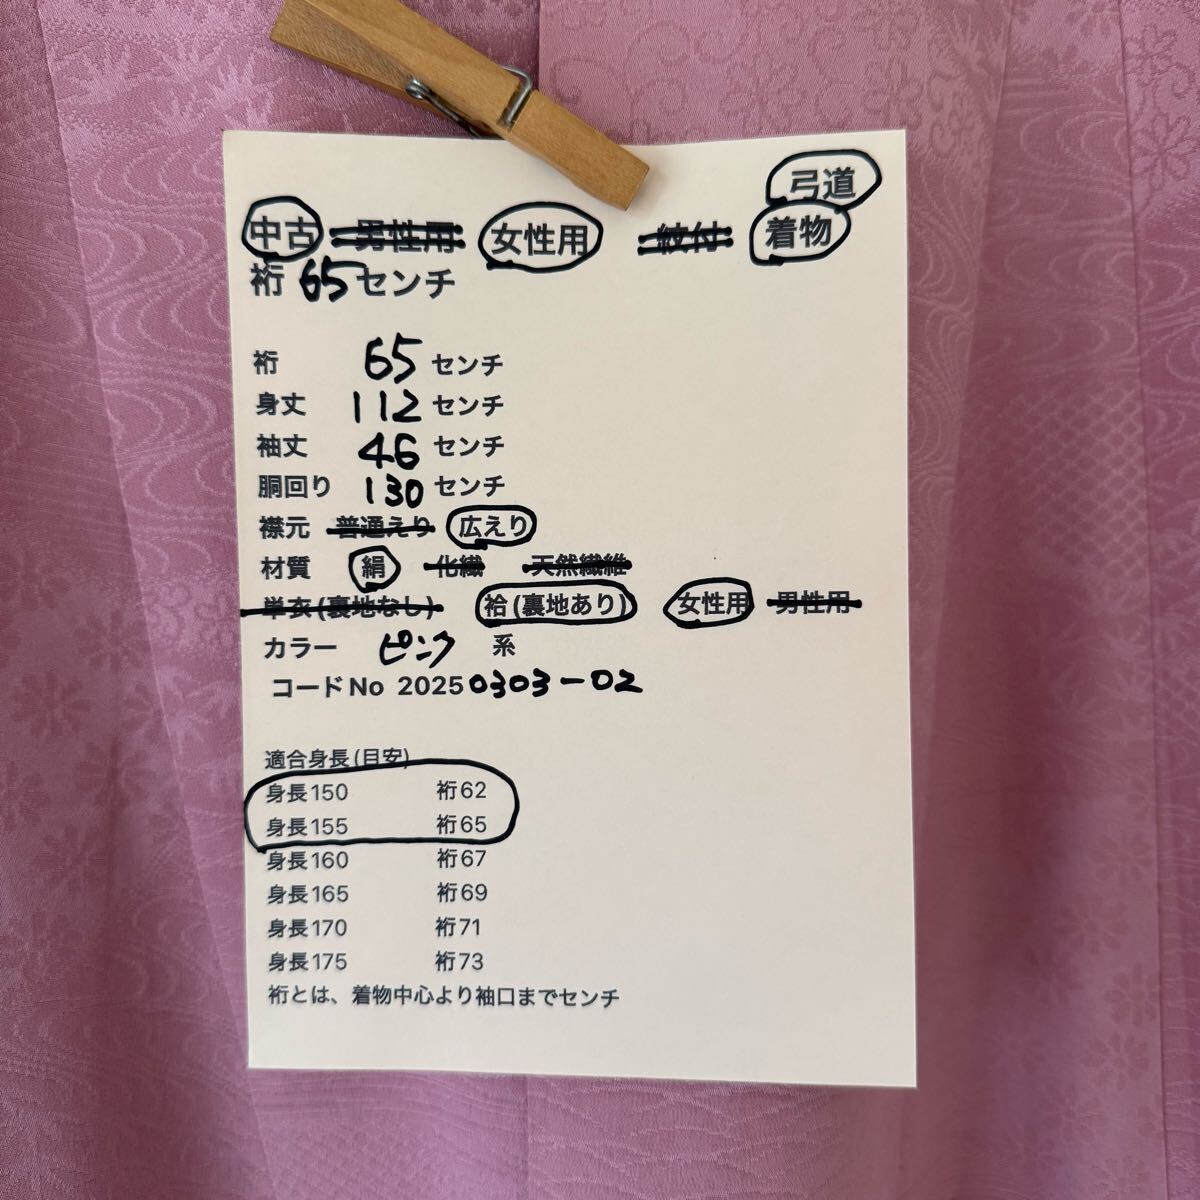 弓道
中古 男性用 女性用 紋付 着物
裄 65 センチ
裄 65 センチ
身丈 112 センチ
袖丈 46 センチ
胴回り 130 センチ
襟元 普通えり 広えり
材質 絹 化繊 天然繊維
単衣(裏地なし) 袷(裏地あり) 女性用 男性用
カラー ピンク 系
コードNo 20250303-02
適合身長(目安)
身長150 裄62
身長155 裄65
身長160 裄67
身長165 裄69
身長170 裄71
身長175 裄73
裄とは、着物中心より袖口までセンチ